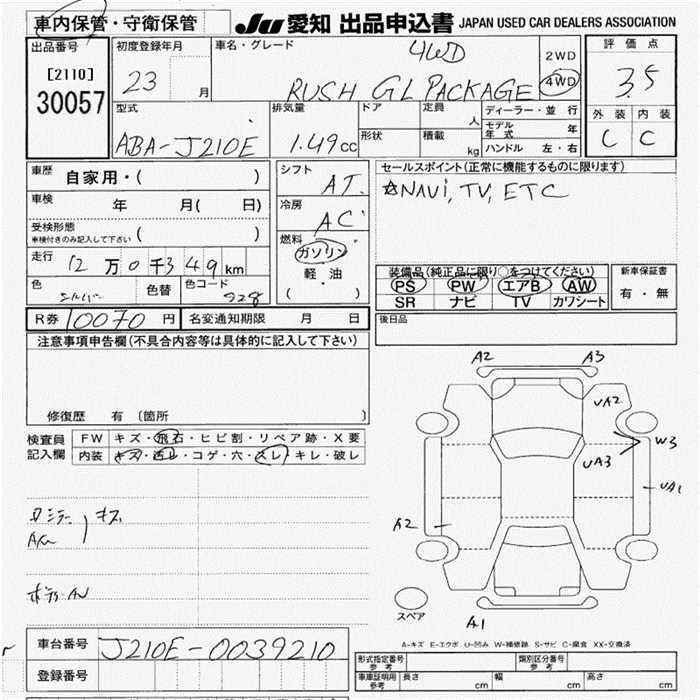 車内保管・守衛保管 JU 愛知 出品申込書 JAPAN USED CAR DEALERS ASSOCIATION
出品番号 初度登録年月 車名・グレード 4WD 2WD 評価点
[2110] 23 月 RUSH GL PACKAGE 4WD 3.5
30057
型式 排気量 ドア 定員 人 ディーラー・並行 外装 内装
ABA-J210E 1.49cc 形状 積載 kg モデル年式 年 C C
ハンドル 左・右
車歴 自家用・( ) シフト AT セールスポイント(正常に機能するものに限ります)
☆NAVi, TV, ETC
車検 年 月( 日) 冷房 AC
受検形態 ( )
車検付きのみ記入して下さい
燃料 ガソリン
走行 12万0千349km 軽・油 装備品(純正品に限り○をつけてください) 新車保証書
PS PW エアB AW 有・無
色 シルバー 色替 色コード S28 ( ) SR ナビ TV カワシート
R券 10070円 名変通知期限 月 日 後日品
注意事項申告欄(不具合内容等は具体的に記入して下さい)
修復歴 有 〔箇所
検査員記入欄 FW キズ・飛石・ヒビ割・リペア跡・X要
内装 キズ・汚レ・コゲ・穴・スレ・キレ・破レ
A2 A3
UA2
W3
UA3
UA1
A2
スペア A1
キズ
A-キズ E-エクボ U-凹み W-補修跡 S-サビ C-腐食 XX-交換済
車台番号 J210E-0039210
登録番号
型式指定番号 参考 類別区分番号 参考
車庫証明用 参考 長さ cm 幅 cm 高さ cm